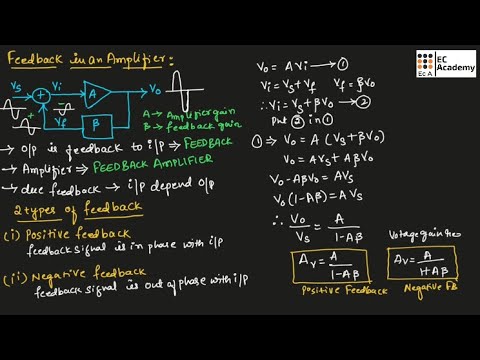 Feedback in an Amplifier:
Vs
Vi
A
Vo
+
+
Vf
β
A → Amplifier gain
β → feedback gain
→ O/P is feedback to i/P ⇒ FEEDBACK
→ Amplifier ⇒ FEEDBACK AMPLIFIER
→ due feedback → i/P depend O/P
2 types of feedback
(i) Positive feedback
feedback signal is in phase with i/P
(ii) Negative feedback
feedback signal is out of phase with i/P
Vo = AVi → ①
Vi = Vs + Vf Vf = βVo
∴ Vi = Vs + βVo → ②
Put ② in ①
① ⇒ Vo = A (Vs + βVo)
Vo = AVs + AβVo
Vo - AβVo = AVs
Vo (1 - Aβ) = AVs
∴ Vo/Vs = A/1-Aβ
Av = A/1-Aβ
Positive Feedback
Voltage gain
Av = A/1+Aβ
Negative FB
EC
Academy
Ec A